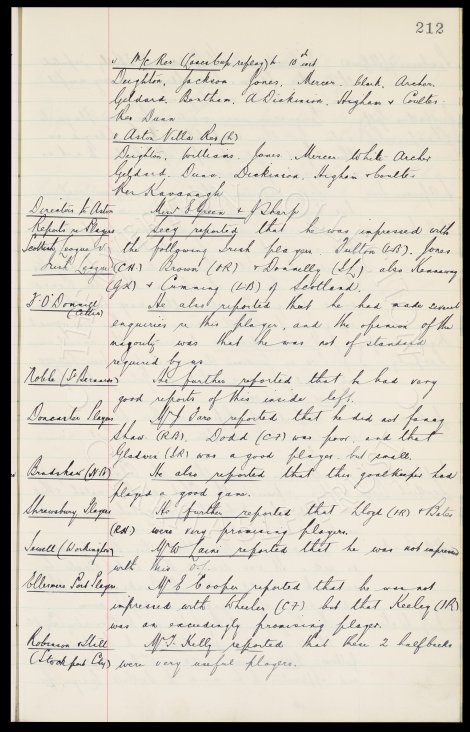 212
v M/c Res (Lancs Cup replay) h 10th inst
Deighton, Jackson, Jones, Mercer, Clark, Archer,
Geldard, Bentham, A Dickinson, Higham & Coulter
Res Dunn
v Aston Villa Res (h)
Deighton, Williams, Jones, Mercer, White, Archer
Geldard, Dunn, Dickinson, Higham & Coulter
Res Kavanagh
Directors to Aston
Mess E Green & J Sharp
Reports re Players
Secy reported that he was impressed with
Scottish League &
the following Irish players Fulton (LB). Jones
Irish League
(CH) Brown (OR) & Donnelly also Kennaway
(GK) & Cumming (LB) of Scotland.
F. O'Donnell
(Celtic)
He also reported that he had made several
enquiries re this player, and the opinion of the
majority was that he was not of standard
required by us
Noble (St Bernards)
He further reported that he had very
good reports of this inside left.
Doncaster Players
Mr reported that he did not fancy
Shaw (RB), Dodd (CF) was poor, and that
Gladwin (IR) was a good player but small.
Bradshaw
He also reported that this goalkeeper had
played a good game.
Shrewsbury Players
He further reported that Lloyd (IR) & Bates
(RH) were very promising players.
Jewell (Workington)
Mr W reported that he was not impressed
with this
Ellesmere Port Players
Mr E Cooper reported that he was not
impressed with Wheeler (CF) but that Keeley (IR)
was an exceedingly promising player.
Robinson & Hill
Mr T. Kelly reported that these 2 halfbacks
(Stockport Cty)
were very useful players.